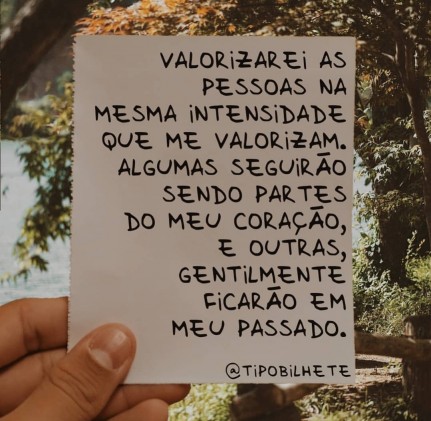 VALORIZAREI AS
PESSOAS NA
MESMA INTENSIDADE
QUE ME VALORIZAM.
ALGUMAS SEGUIRÃO
SENDO PARTES
DO MEU CORAÇÃO,
E OUTRAS,
GENTILMENTE
FICARÃO EM
MEU PASSADO.
@TIPOBILHETE